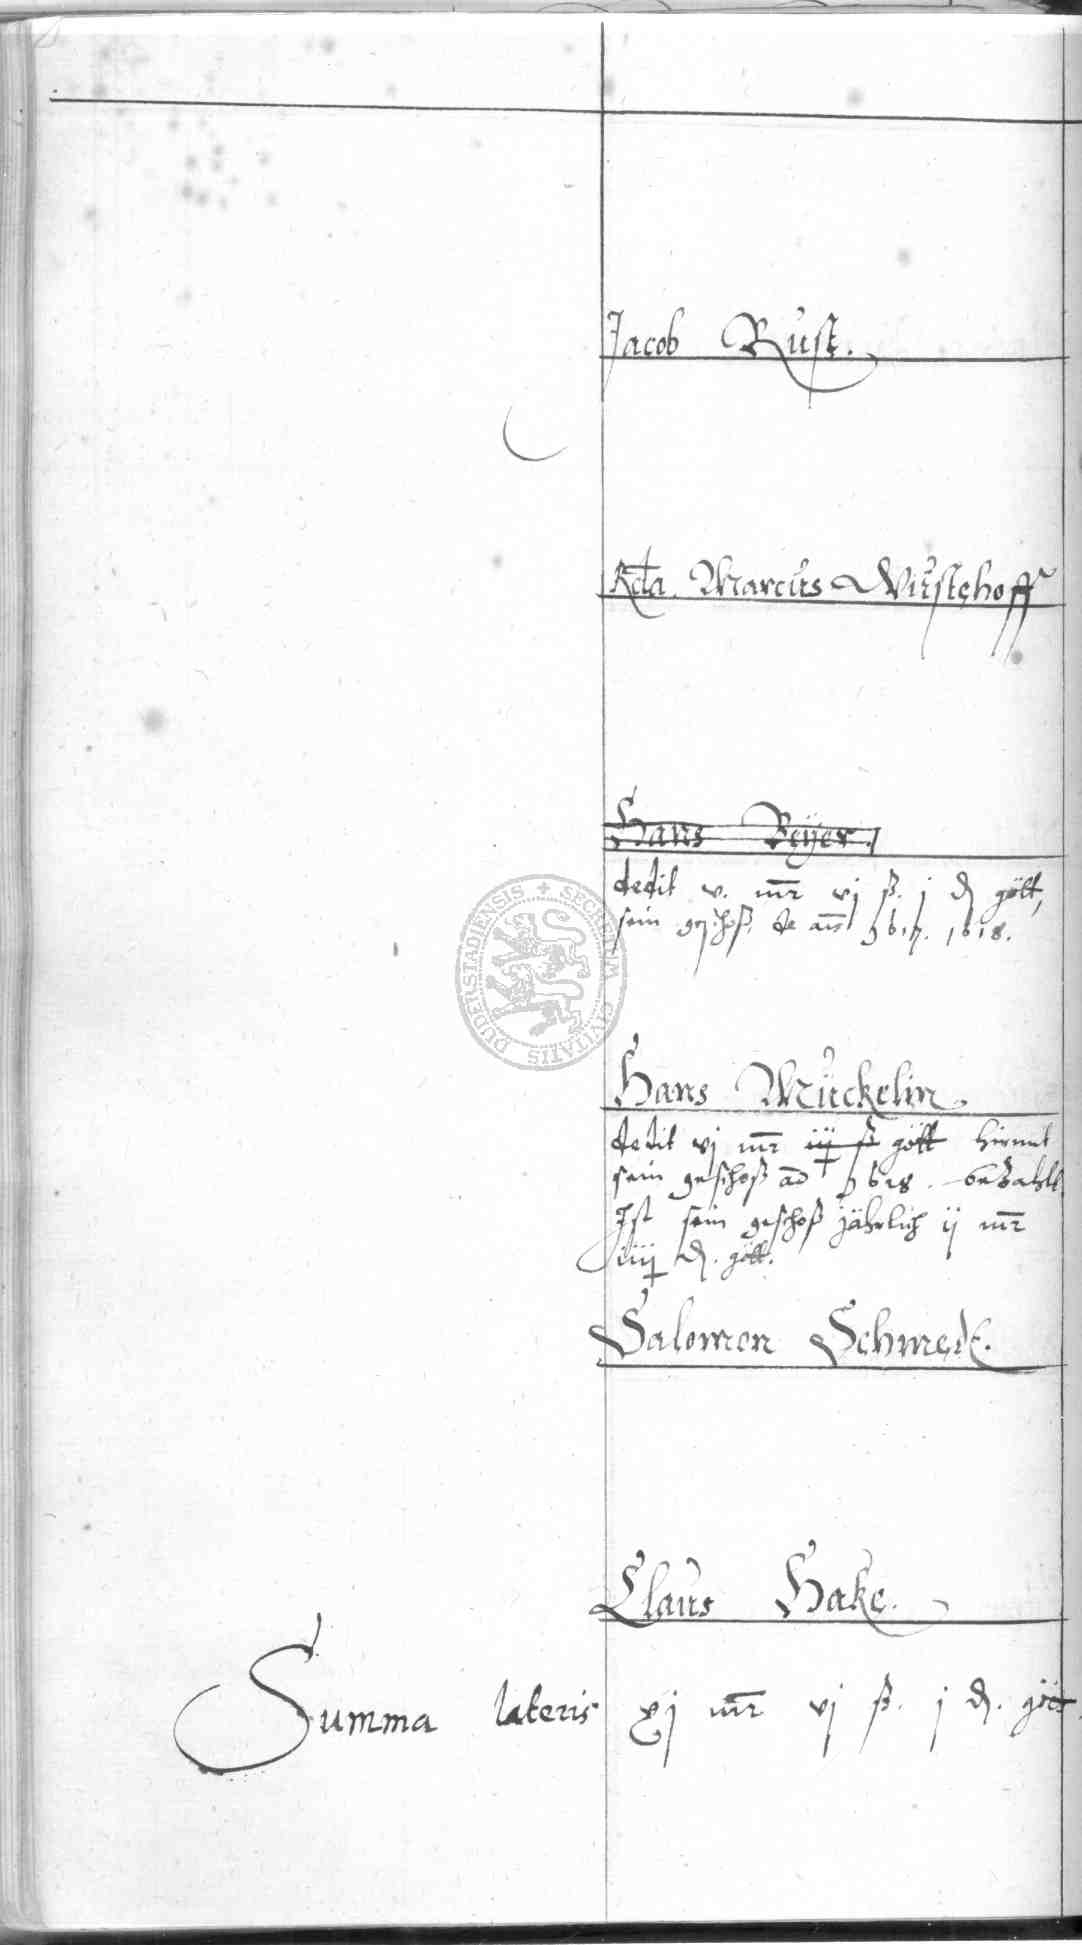 Jacob Rust.
Rcta. Marcus Wüstehoff
Hans Beyer.
dedit v. mr vj ß. j d gött,
sein geschoß de ann 1617. 1618.
Hans Mückelin
dedit vj mr iij ß gött hirmit
sein geschoß ad 1618. bezahlt
Ist sein geschoß jährlich ij mr
iiij d. gött.
Salomon Schmedt.
Claus Hake.
Summa lateris xj mr vj ß. j d. gött
SECRETUM CIVITATIS DUDERSTADIENSIS